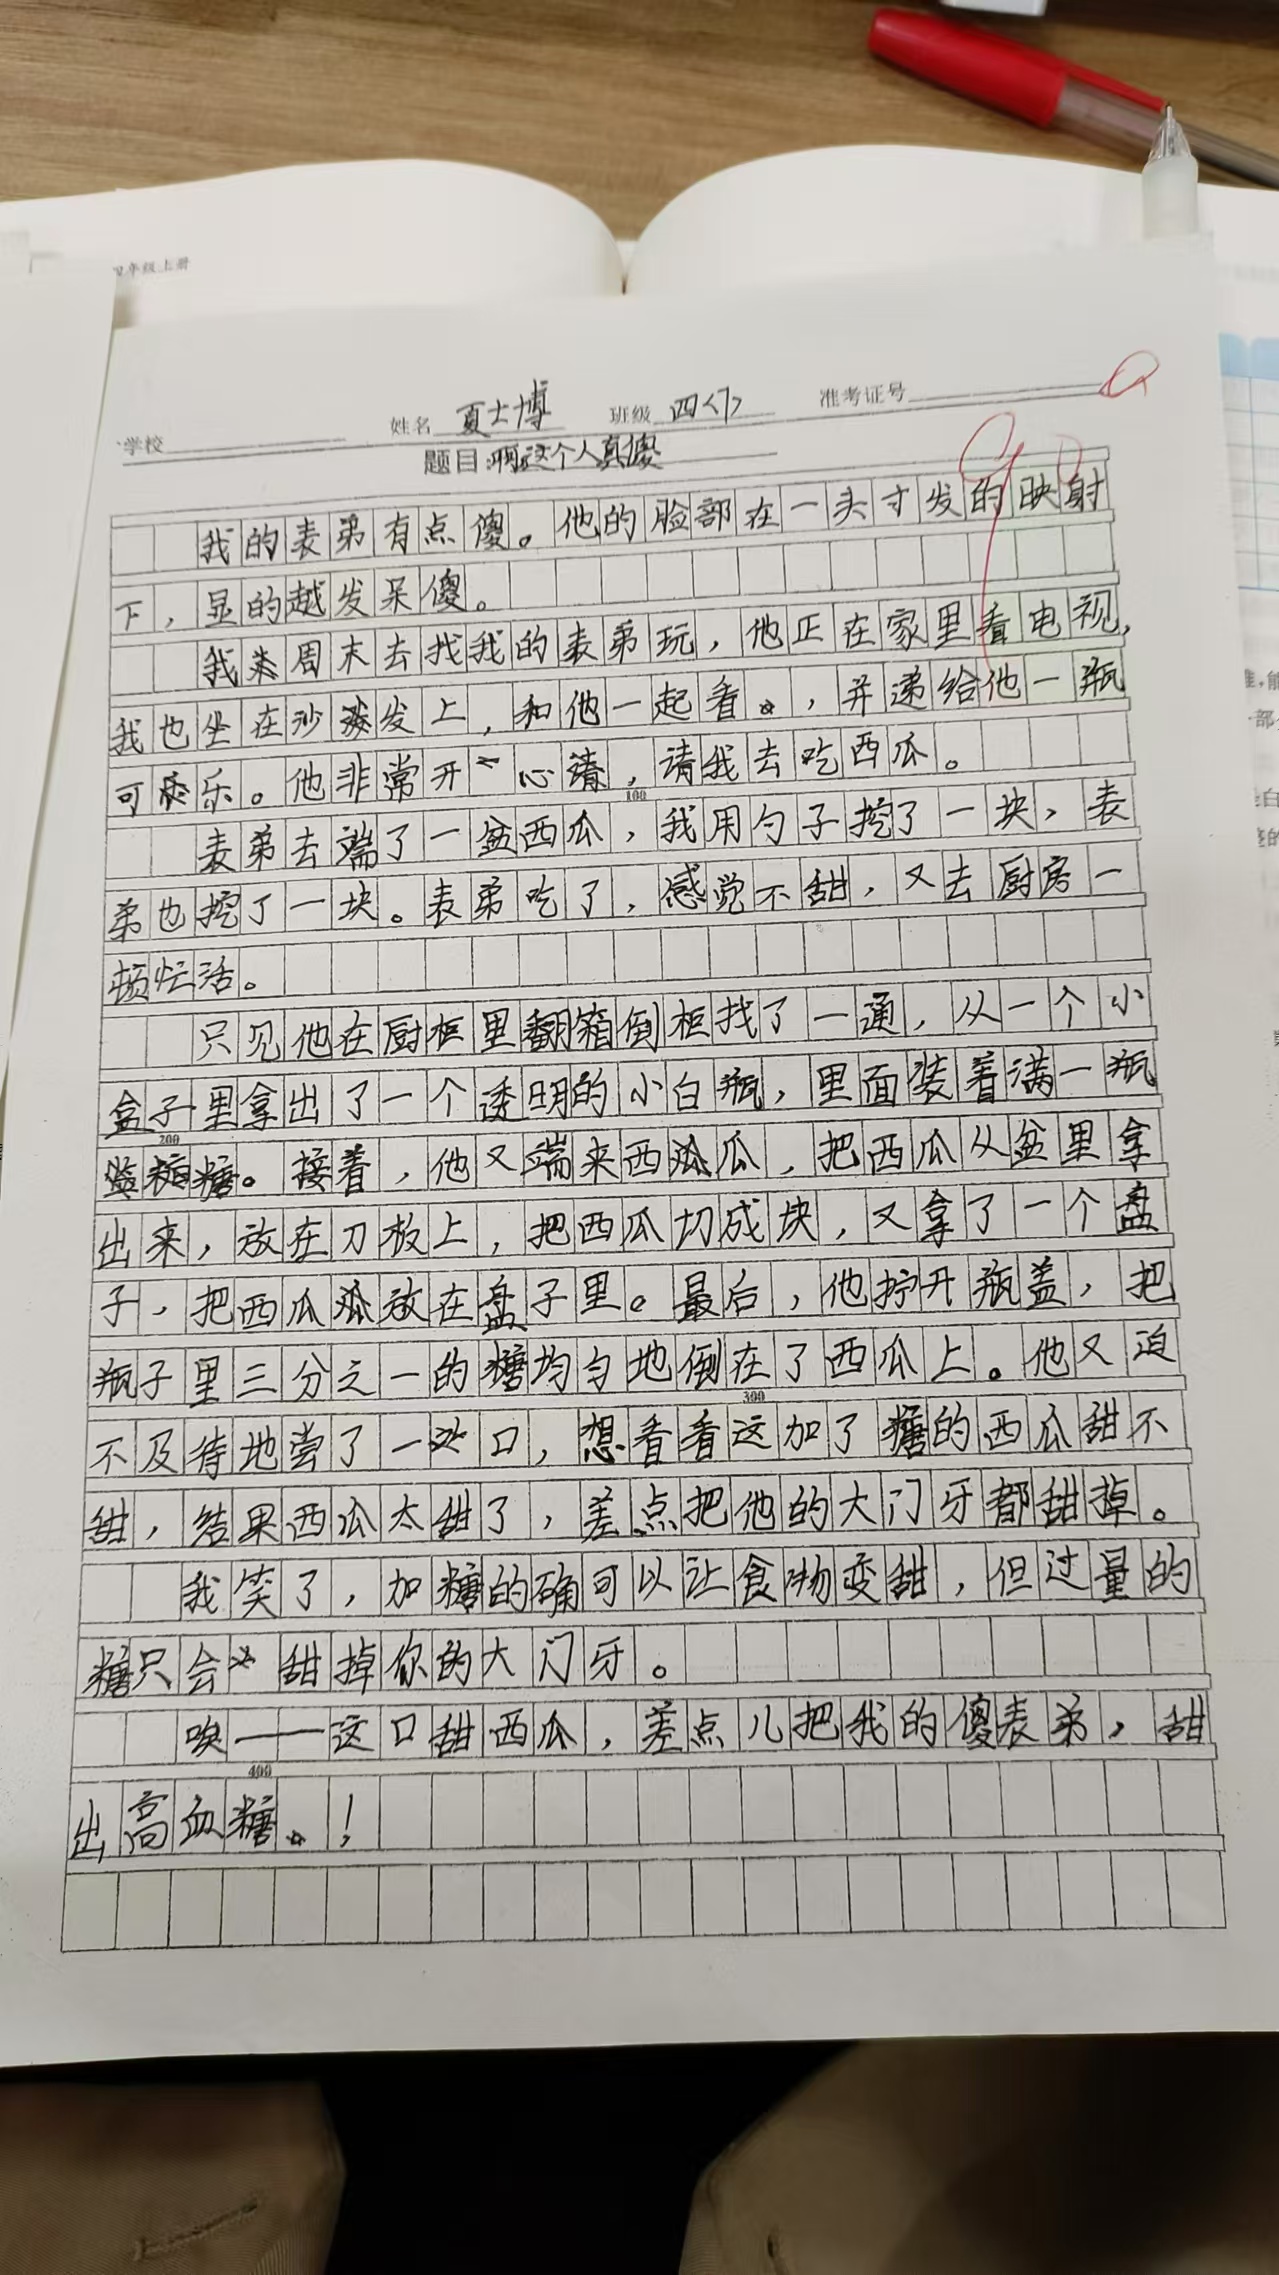 四年级上册
学校 姓名 夏士博 班级 四<7> 准考证号
题目:啊这个人真傻
我的表弟有点傻。他的脸部在一头寸发的映射
下，显的越发呆傻。
我周末去找我的表弟玩，他正在家里看电视，
我也坐在沙发上，和他一起看，并递给他一瓶
可乐。他非常开心，请我去吃西瓜。
100
表弟去端了一盆西瓜，我用勺子挖了一块，表
弟也挖了一块。表弟吃了，感觉不甜，又去厨房一
顿忙活。
只见他在厨柜里翻箱倒柜找了一通，从一个小
盒子里拿出了一个透明的小白瓶，里面装着满一瓶
200
糖。接着，他又端来西瓜，把西瓜从盆里拿
出来，放在刀板上，把西瓜切成块，又拿了一个盘
子，把西瓜放在盘子里。最后，他拧开瓶盖，把
瓶子里三分之一的糖均匀地倒在了西瓜上。他又迫
300
不及待地尝了一口，想看看这加了糖的西瓜甜不
甜，结果西瓜太甜了，差点把他的大门牙都甜掉。
我笑了，加糖的确可以让食物变甜，但过量的
糖只会甜掉你的大门牙。
唉——这口甜西瓜，差点儿把我的傻表弟，甜
400
出高血糖！